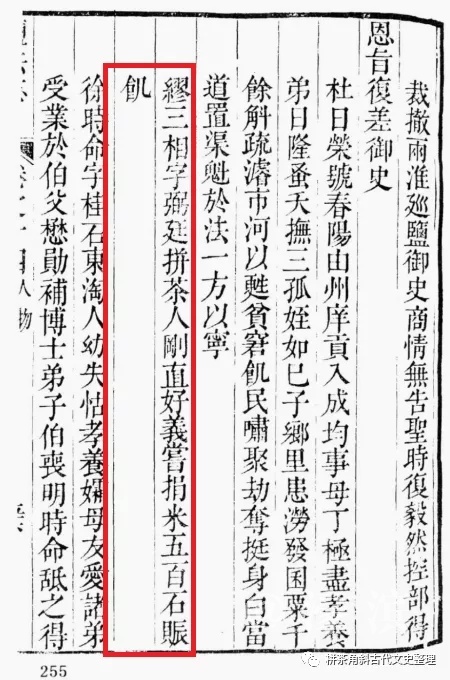 裁撤兩淮廵鹽御史商情無告聖時復毅然控部得
恩旨復差御史
杜日榮號春陽由州庠貢入成均事母丁極盡孝養
弟日隆蚤夭撫三孤姪如巳子鄉里患澇發囷粟千
餘斛疏濬市河以甦貧窘飢民嘯聚劫奪挺身白當
道置渠魁於法一方以寧
繆三相字弼廷拼茶人剛直好義嘗捐米五百石賑
飢
徐時命字桂石東淘人幼失怙孝養孀母友愛諸弟
受業於伯父懋勛補博士弟子伯喪明時命舐之得
人物
255
栟茶角斜古代文史整理